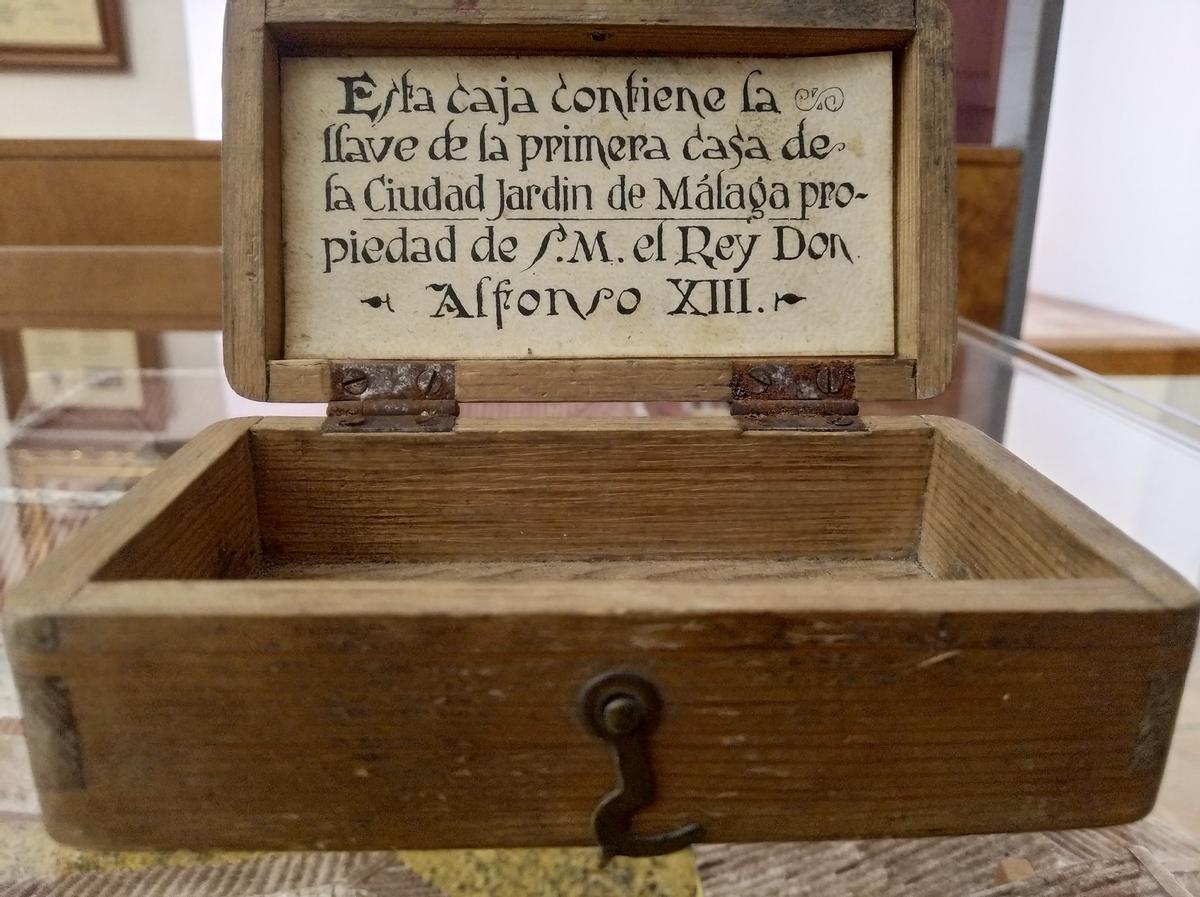 Esta caja contiene la
llave de la primera casa de
la Ciudad Jardin de Málaga pro-
piedad de S.M. el Rey Don
Alfonso XIII.